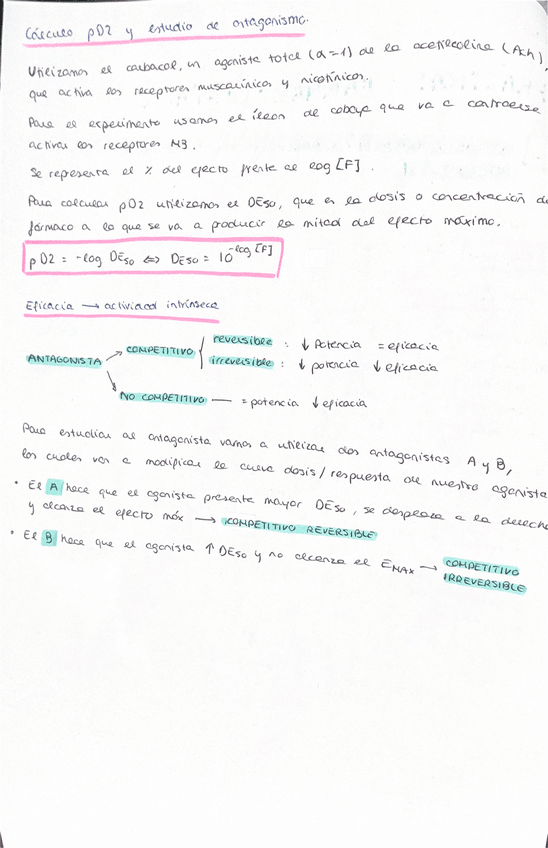 Cálculo pD2 y estudio de antagonismo.
Utilizamos el carbacol, un agonista total (α=1) de la acetilcolina (Ach),
que activa los receptores muscarínicos y nicotínicos.
Para el experimento usamos el íleon de cobaya que va a contraerse
activar los receptores M3.
Se representa el % del efecto frente al log [F].
Para calcular pD2 utilizamos el DE50, que es la dosis o concentración de
fármaco a la que se va a producir la mitad del efecto máximo.
pD2 = -log DE50 ⇔ DE50 = 10^-log [F]
Eficacia → actividad intrínseca
reversible : ↓ Potencia = eficacia
ANTAGONISTA → COMPETITIVO { irreversible : ↓ potencia ↓ eficacia
NO COMPETITIVO — = potencia ↓ eficacia
Para estudiar al antagonista vamos a utilizar dos antagonistas A y B,
los cuales van a modificar la curva dosis/respuesta de nuestro agonista
• El A hace que el agonista presente mayor DE50, se desplaza a la derecha
y alcanza el efecto máx → COMPETITIVO REVERSIBLE
• El B hace que el agonista ↑ DE50 y no alcanza el EMAX → COMPETITIVO
IRREVERSIBLE